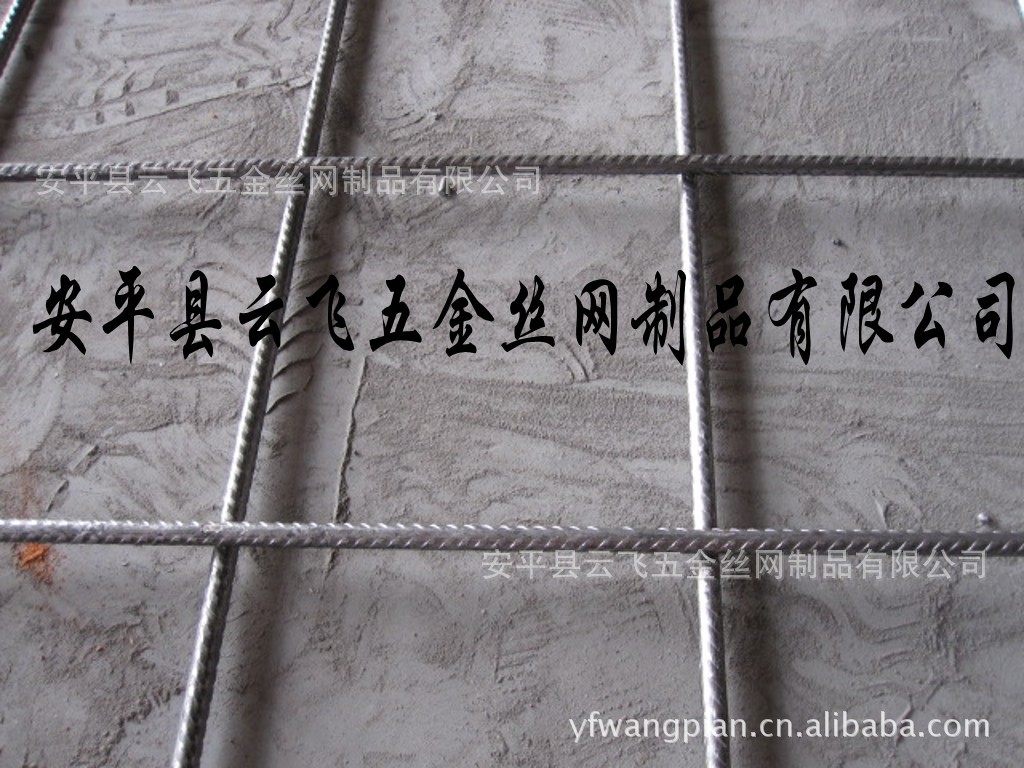 安平县云飞五金丝网制品有限公司
安平县云飞五金丝网制品有限公司
安平县云飞五金丝网制品有限公司
yfwangpian.cn.alibaba.com